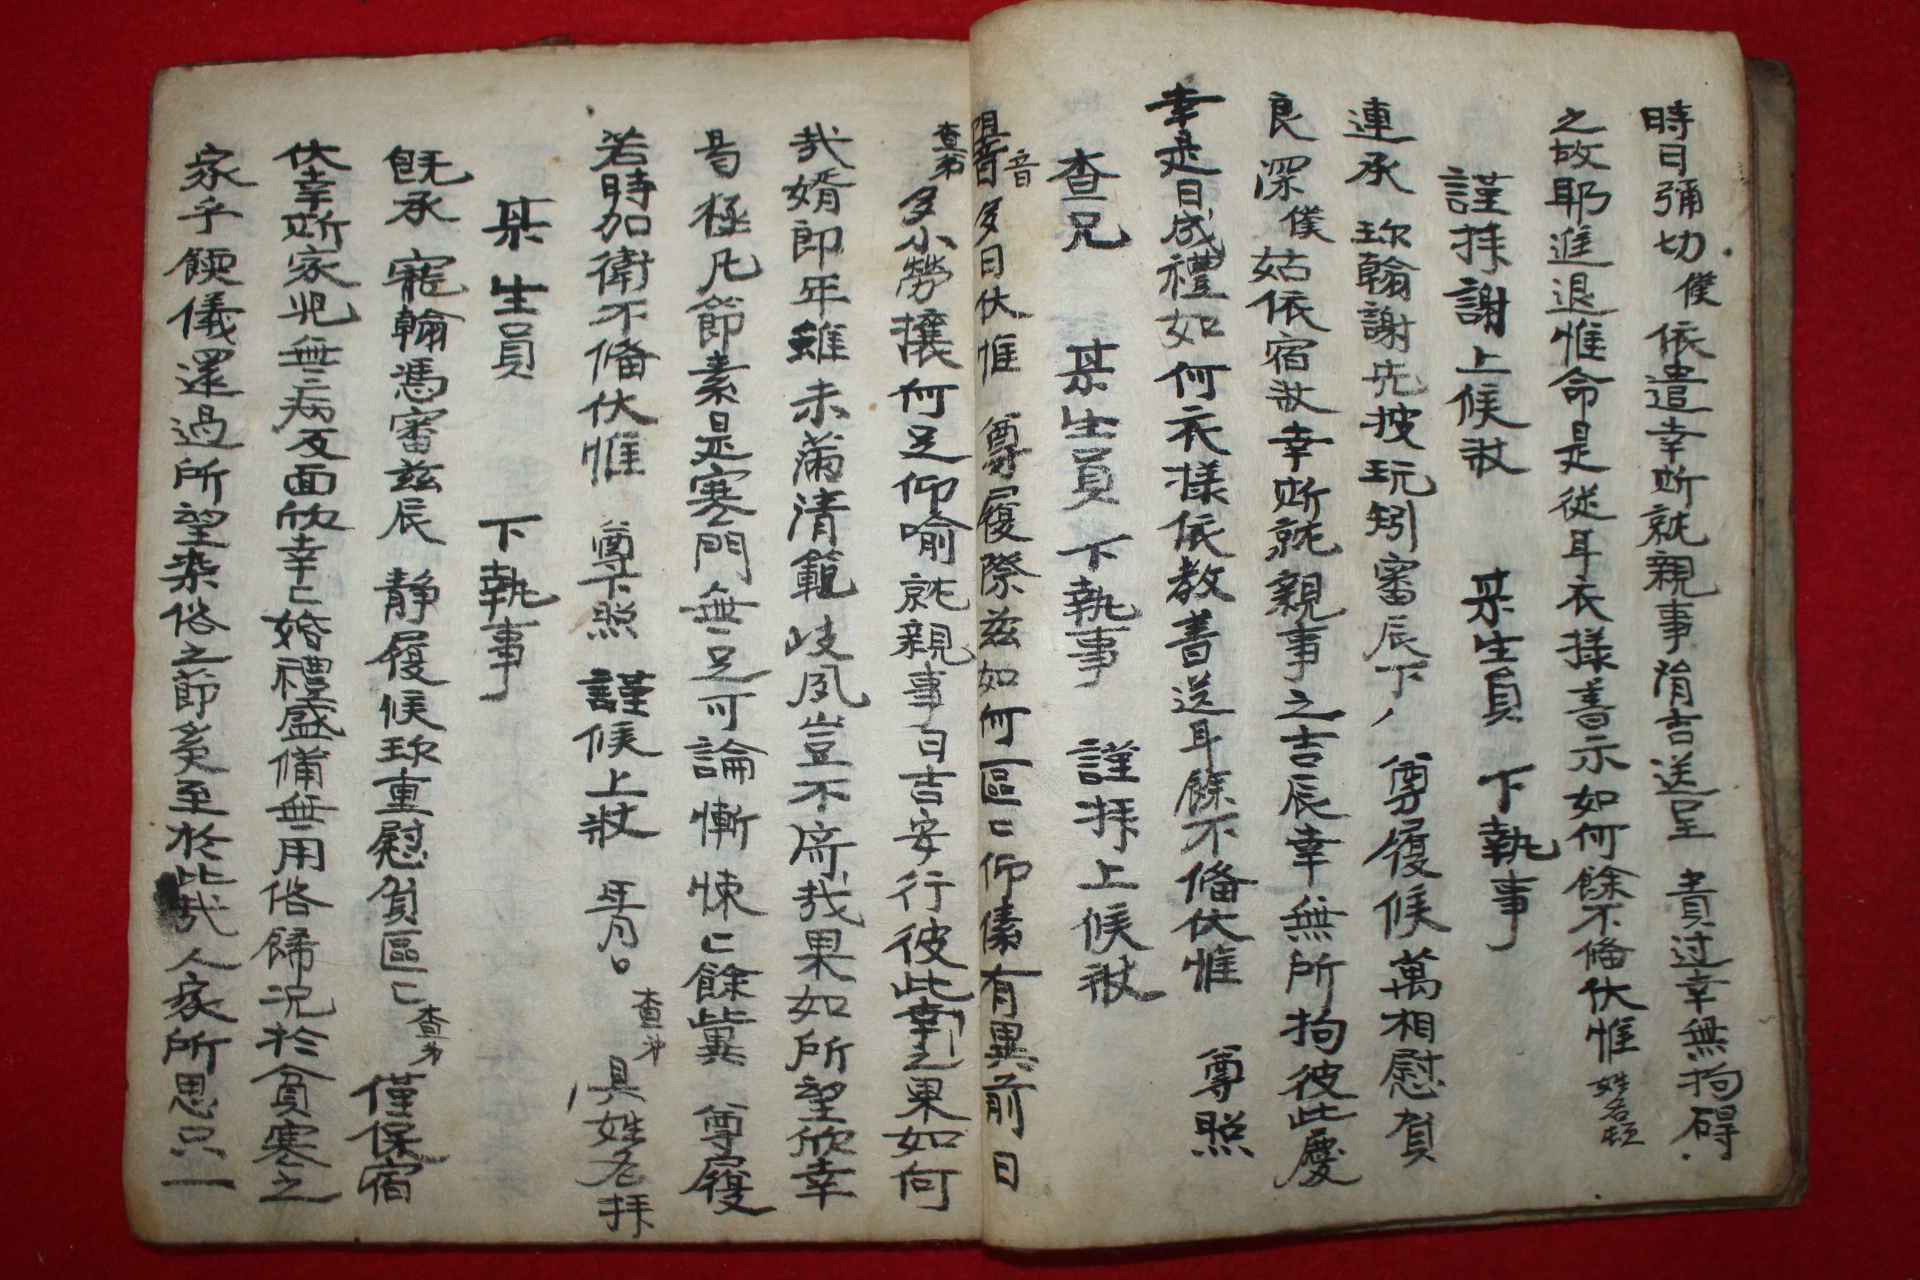 時日彌切 僕 依遣幸斯就親事涓吉送呈 責过幸無拘碍
之故耶進退惟命是從耳衣樣書示如何餘不俻伏惟 姓名頓
謹拜謝上候狀 某生員 下執事
連承 珎翰謝先披玩矧審辰下 尊履候萬相慰賀
良深 僕 姑依宿狀幸斯就親事之吉辰幸無所拘彼此慶
幸是日成禮如何衣樣依教書送耳餘不俻伏惟 尊照
查兄 某生員 下執事 謹拜上候狀
阻音多日伏惟 尊履際茲如何區〻仰傃有異前日
查弟 多小勞攘何足仰喻就親事日吉安行彼此幸之果如何
哉婿郎年雖未滿清範岐夙豈不奇哉果如所望欣幸
曷極凡節素是寒門無足可論慚悚〻餘冀 尊履
若時加衛不俻伏惟 尊下照 謹候上狀 年月日 查弟 具姓名拜
某生員 下執事
旣承 寵翰馮審茲辰 靜履候珎重慰賀區〻 查弟 僅保宿
伏幸斯家児無病反面欣幸〻婚禮盛備無用俗歸况於貧寒之
家乎餪儀還過所望染俗之節奚至於此哉人家所思只一